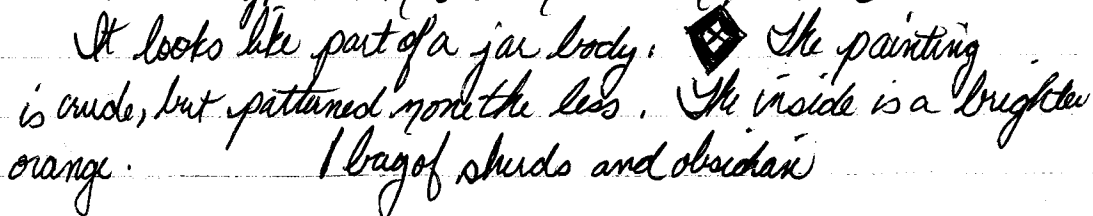 It looks like part of a jar body. The painting
is crude, but patterned none the less. The inside is a brighter
orange. 1 bag of sherds and obsidian